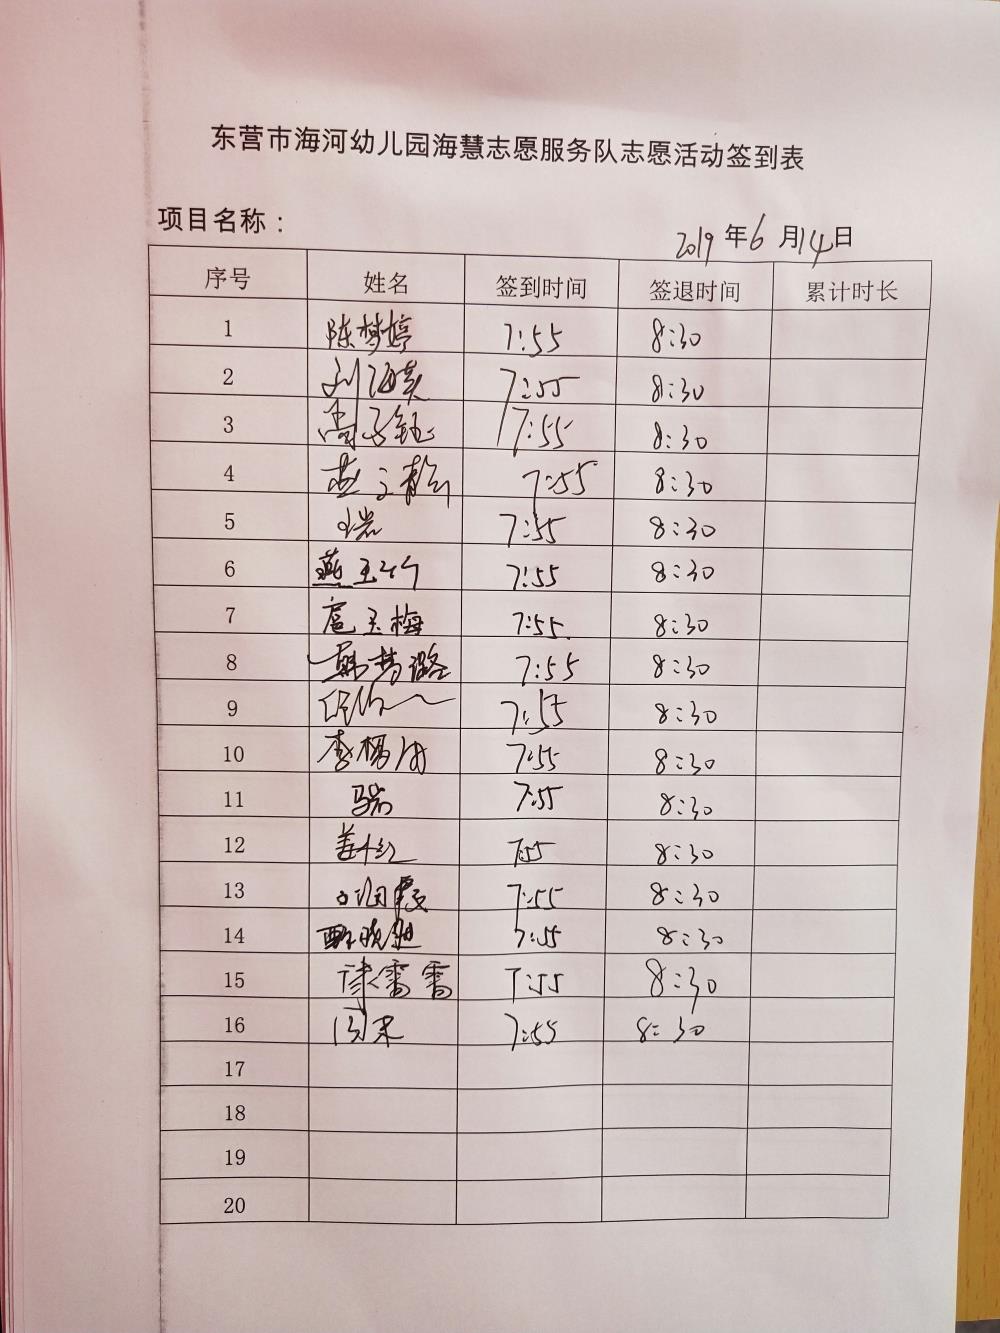 东营市海河幼儿园海慧志愿服务队志愿活动签到表
项目名称：
2019 年 6 月 14 日
序号 姓名 签到时间 签退时间 累计时长
1 陈梦婷 7:55 8:30
2 刘海英 7:55 8:30
3 尚子钰 7:55 8:30
4 燕 7:55 8:30
5 7:55 8:30
6 燕玉竹 7:55 8:30
7 扈玉梅 7:55 8:30
8 韩梦璐 7:55 8:30
9 7:55 8:30
10 李 7:55 8:30
11 7:55 8:30
12 姜 7:55 8:30
13 7:55 8:30
14 7:55 8:30
15 雷雷 7:55 8:30
16 周末 7:55 8:30
17
18
19
20